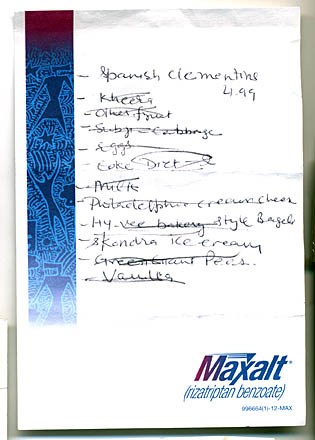 - Spanish Clementins
4.99
- Kheera
- Other fruit
- Subzi - Cabbage
- Eggs
- Coke Diet
- Milk
- Philadelphia cream cheese
- Hy-Vee bakery style Bagels
- Skondra ice cream
- Green Giant Peas.
- Vanilla
Maxalt®
(rizatriptan benzoate)
996664(1)-12-MAX